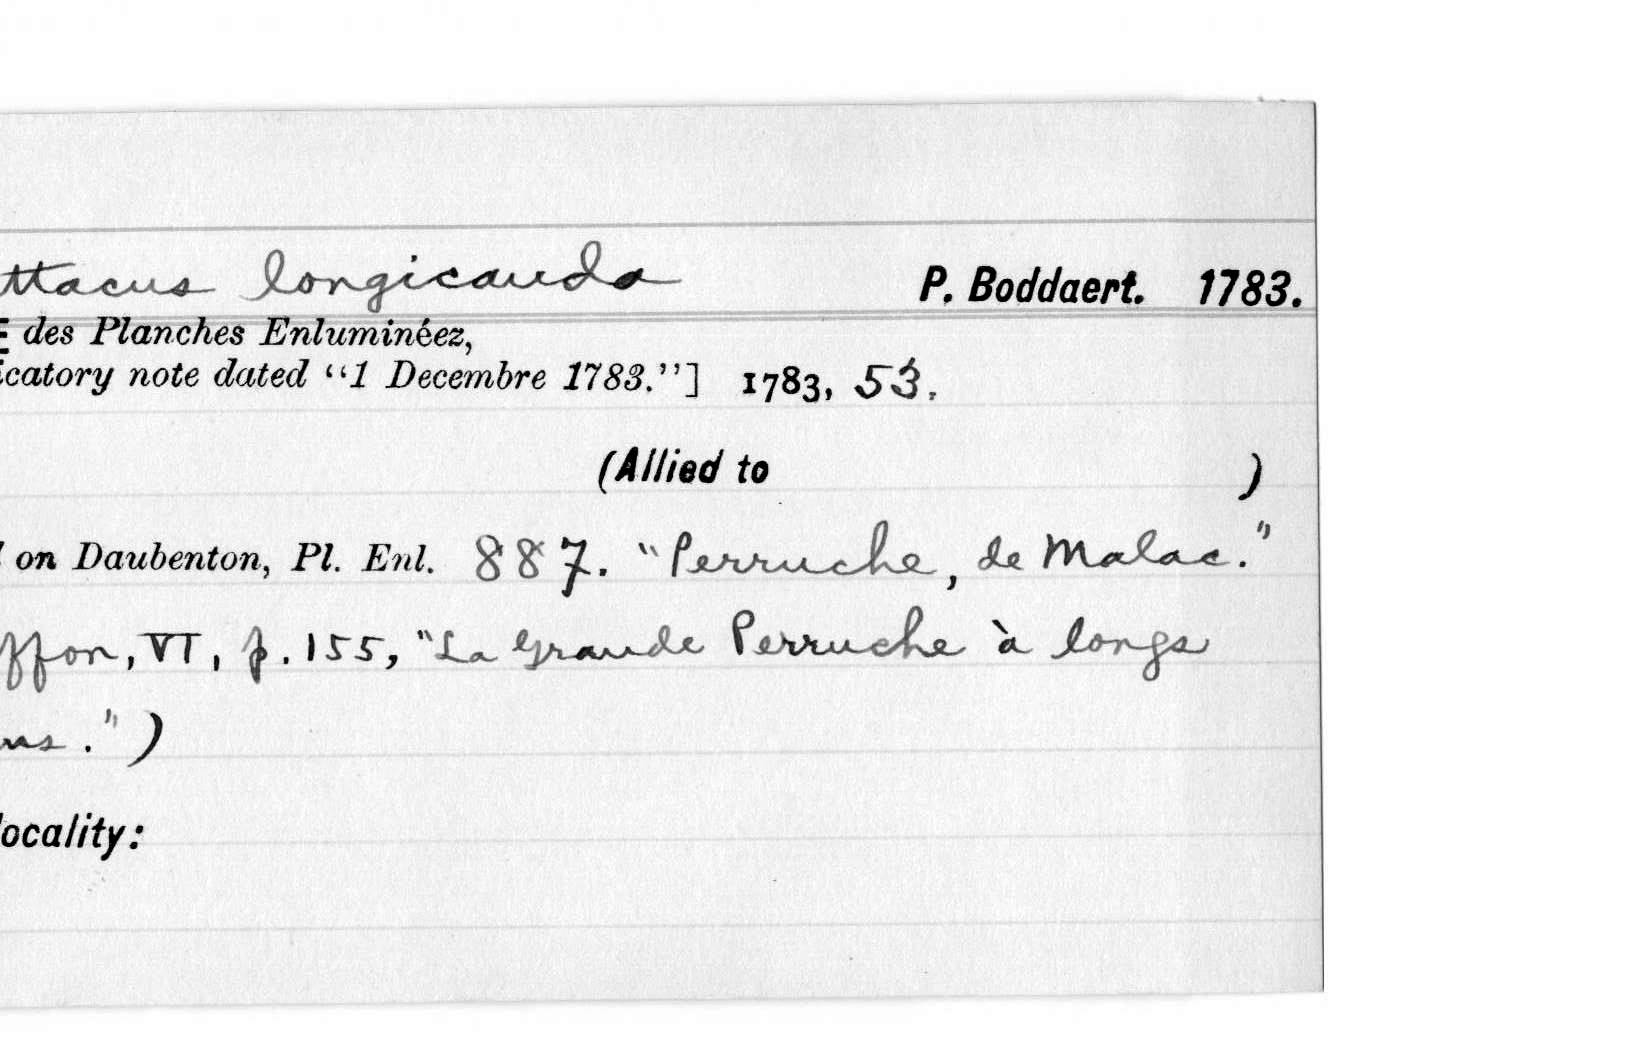 ttacus longicauda P. Boddaert. 1783.
E des Planches Enluminéez,
icatory note dated “1 Decembre 1783.”] 1783, 53.
(Allied to )
on Daubenton, Pl. Enl. 887. "Perruche, de Malac."
ffon, VI, p. 155, "La Grande Perruche à longs
ns.")
locality: